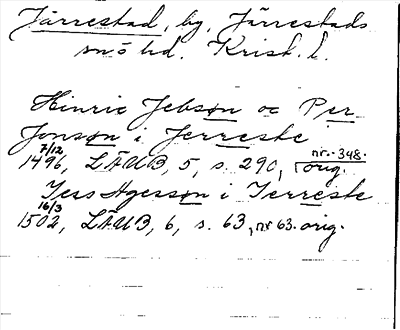 Järrestad, by, Järrestads
snö hd. Krist. l.
Hinric Jebsøn oc Per
Jonsøn i Jerreste
7/12 nr. 348.
1496, LÄUB, 5, s. 290, orig.
Jess Agessøn i Jerreste
16/3
1502, LÄUB, 6, s. 63, nr 63. orig.